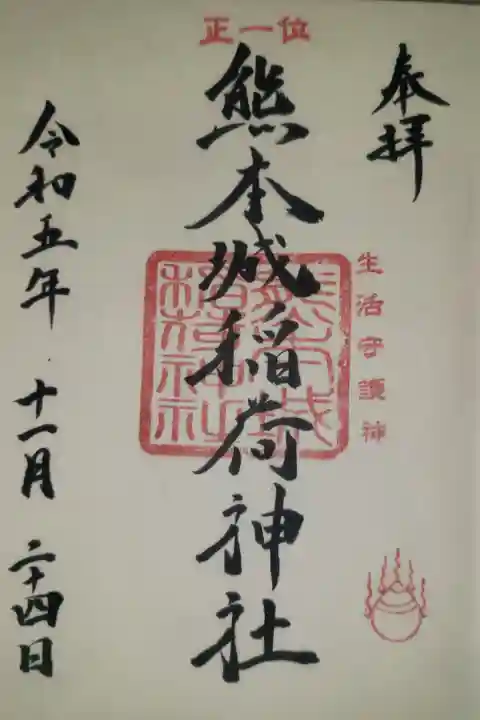 奉拝
正一位
熊本城稲荷神社
生活守護神
熊本城
稲荷神社
令和五年 十一月 二十四日